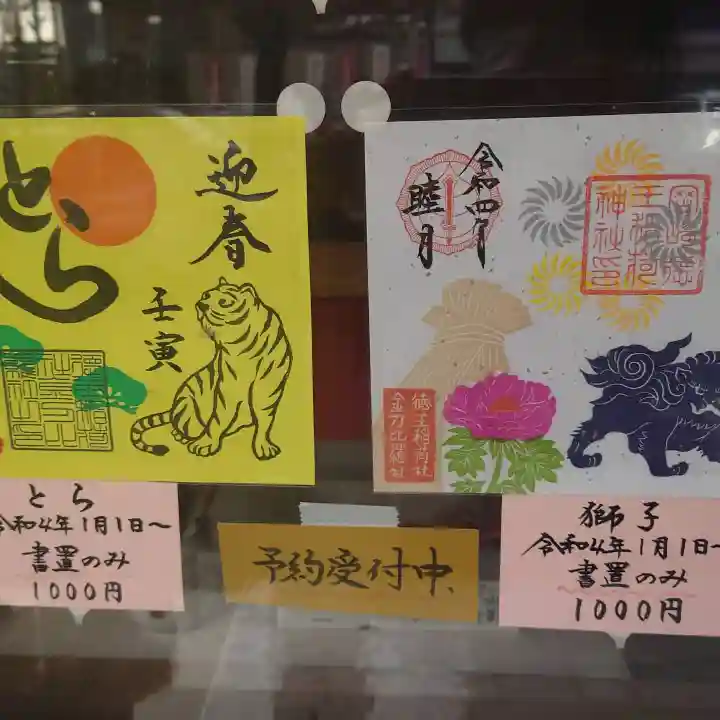 とら
迎春
壬寅
とら
令和4年1月1日～
書置のみ
1000円
予約受付中、
令和四年
睦月
徳王稲荷社
金刀比羅社
獅子
令和4年1月1日～
書置のみ
1000円